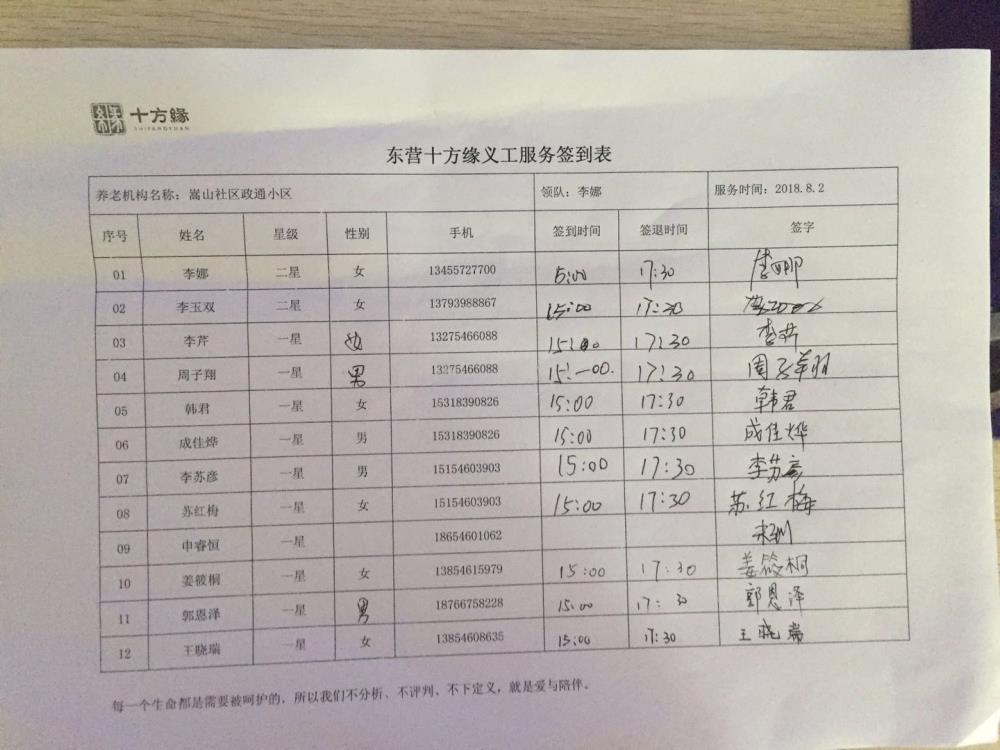 十方缘
SHIFANGYUAN
东营十方缘义工服务签到表
养老机构名称：嵩山社区政通小区 领队：李娜 服务时间：2018.8.2
序号 姓名 星级 性别 手机 签到时间 签退时间 签字
01 李娜 二星 女 13455727700 5:00 17:30 李娜
02 李玉双 二星 女 13793988867 15:00 17:30
03 李芹 一星 女 13275466088 15:00 17:30 李芹
04 周子翔 一星 男 13275466088 15:00. 17:30 周子翔
05 韩君 一星 女 15318390826 15:00 17:30 韩君
06 成佳烨 一星 男 15318390826 15:00 17:30 成佳烨
07 李苏彦 一星 男 15154603903 15:00 17:30 李苏彦
08 苏红梅 一星 女 15154603903 15:00 17:30 苏红梅
09 申睿恒 一星 18654601062 未到
10 姜筱桐 一星 女 13854615979 15:00 17:30 姜筱桐
11 郭恩泽 一星 男 18766758228 15:00 17:30 郭恩泽
12 王晓瑞 一星 女 13854608635 15:00 17:30 王晓瑞
每一个生命都是需要被呵护的，所以我们不分析、不评判、不下定义，就是爱与陪伴。